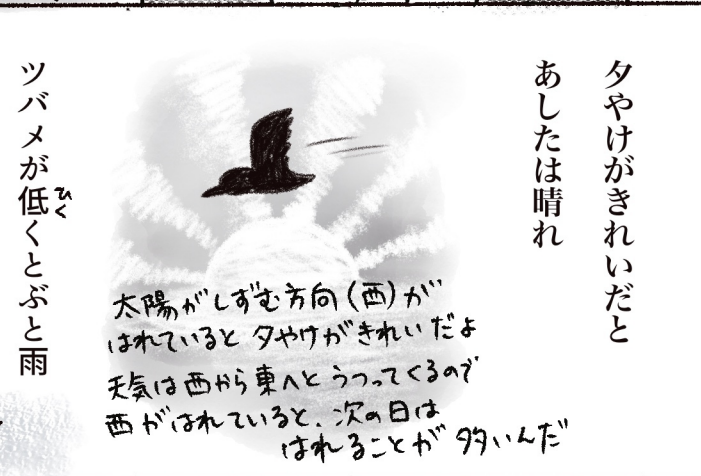 夕やけがきれいだと
あしたは晴れ
太陽がしずむ方向(西)が
はれていると夕やけがきれいだよ
天気は西から東へとうつってくるので
西がはれていると、次の日は
はれることが多いんだ
ツバメが低くとぶと雨
ひく